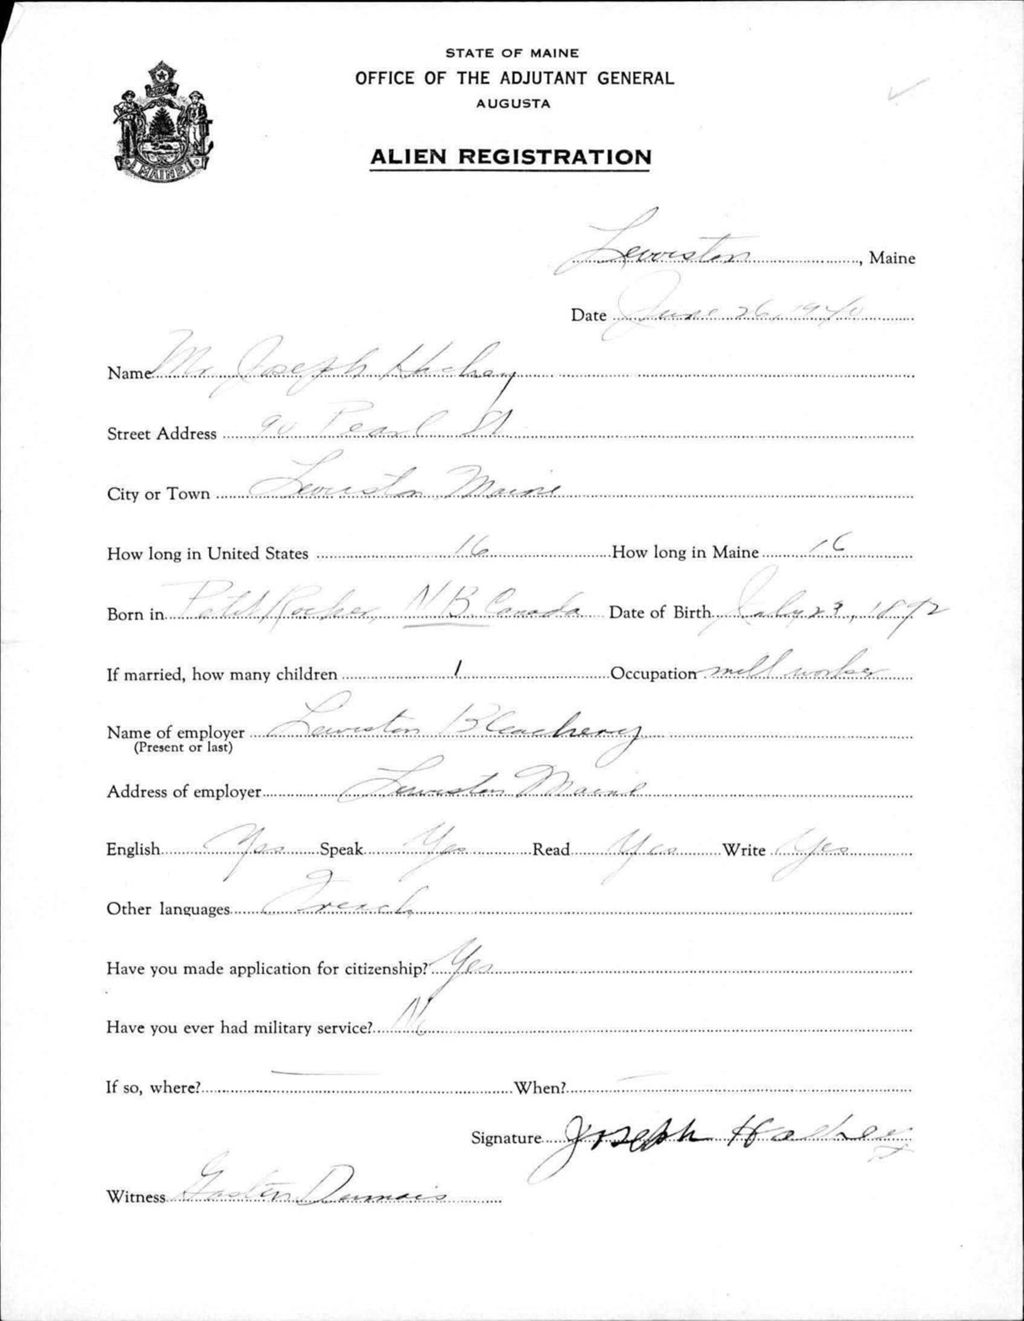 STATE OF MAINE
OFFICE OF THE ADJUTANT GENERAL
AUGUSTA
ALIEN REGISTRATION
MAINE
Lewiston, Maine
Date June 26, 1940
Name Mr Joseph Hachey
Street Address 90 Pearl St
City or Town Lewiston, Maine
How long in United States 16 How long in Maine 16
Born in Petit Rocher, NB Canada Date of Birth July 23, 1892
If married, how many children 1 Occupation mill worker
Name of employer Lewiston Bleachery
(Present or last)
Address of employer Lewiston Maine
English Yes Speak Yes Read Yes Write Yes
Other languages French
Have you made application for citizenship? Yes
Have you ever had military service? No
If so, where? — When? —
Signature Joseph Hachey
Witness Gaston Dumais